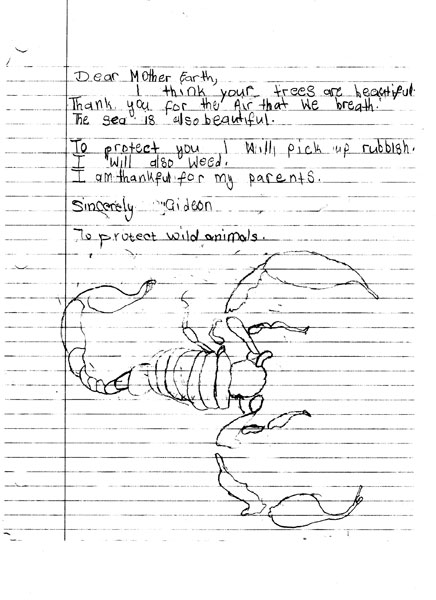 Dear Mother Earth,
I think your trees are beautiful.
Thank you for the Air that we breath.
The sea is also beautiful.
To protect you I will pick up rubbish.
I will also weed.
I am thankful for my parents.
Sincerely Gideon
To protect wild animals.